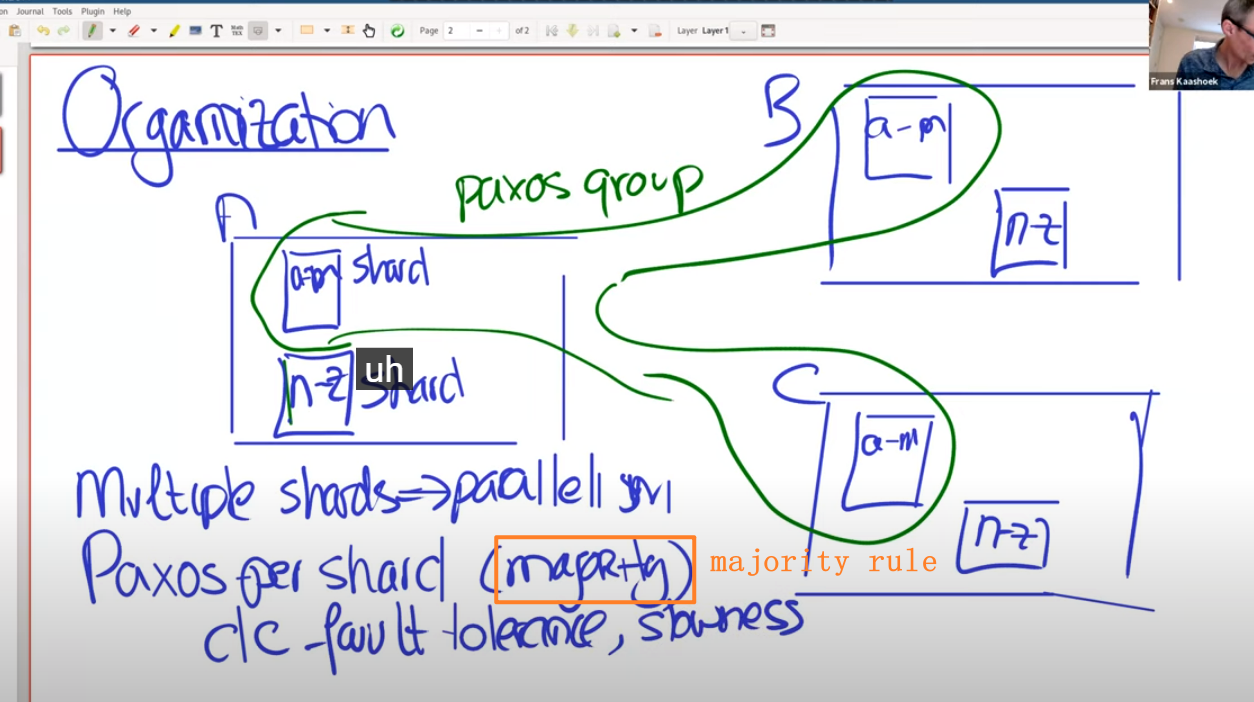 on Journal Tools Plugin Help
Page 2 of 2 Layer Layer 1
Frans Kaashoek
Organization
B
a-m
n-z
paxos group
A
a-m shard
n-z shard
uh
C
a-m
n-z
Multiple shards => parallelism
Paxos per shard (majority) majority rule
c/c fault tolerance, slowness